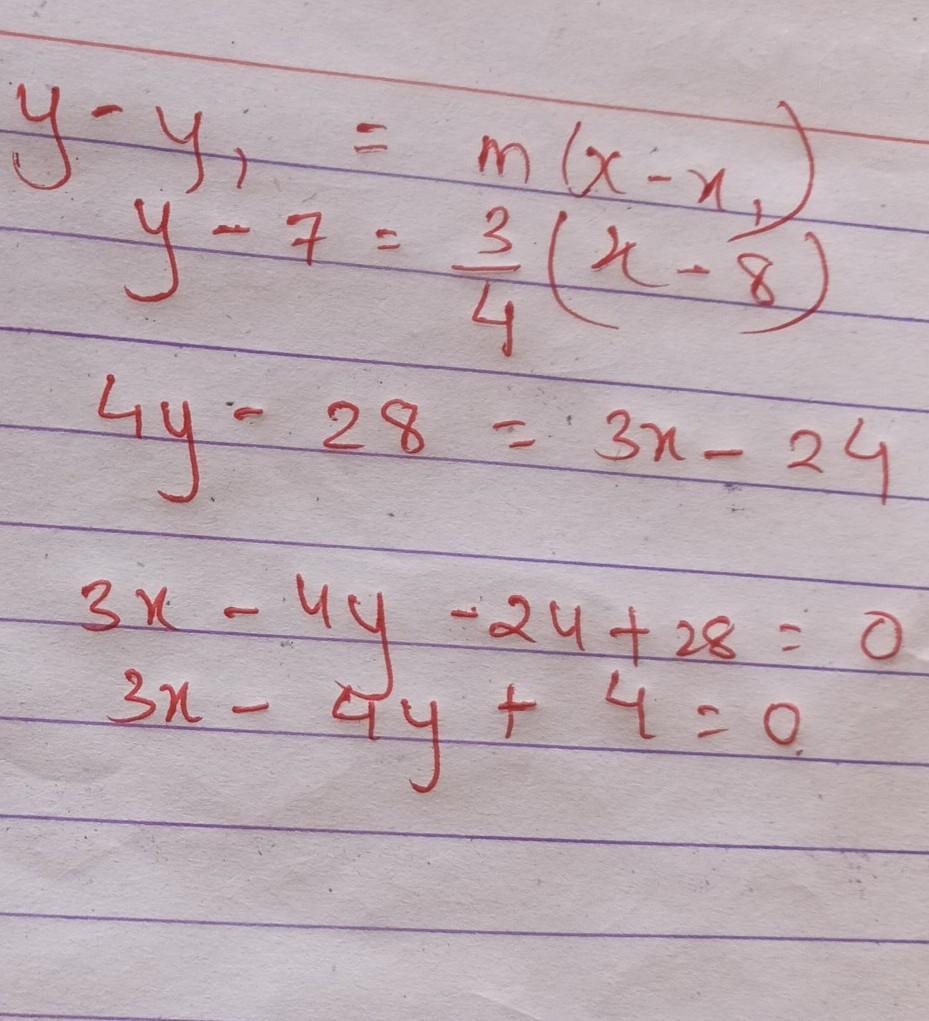 y - y₁ = m(x - x₁)
y - 7 = 3/4 (x - 8)
4y - 28 = 3x - 24
3x - 4y - 24 + 28 = 0
3x - 4y + 4 = 0